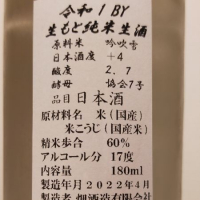 令和1BY
生もと純米生酒
原料米 吟吹雪
日本酒度 +4
酸度 2.7
酵母 協会7号
品目 日本酒
原材料名 米(国産)
米こうじ(国産米)
精米歩合 60%
アルコール分 17度
内容量 180ml
製造年月2022年4月
製造者 畑酒造有限会社